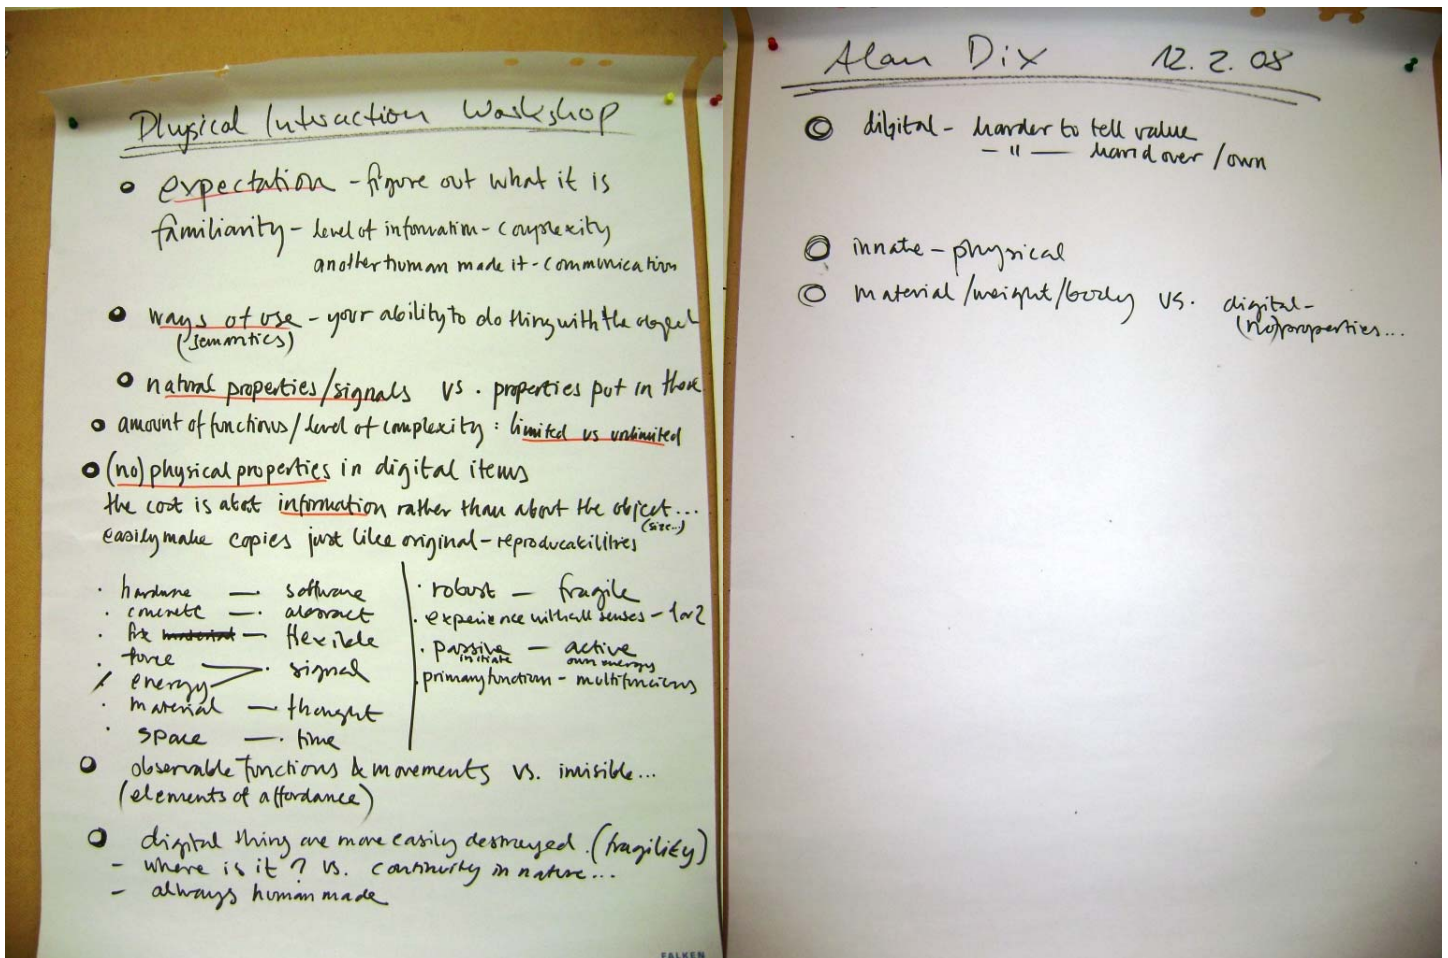 Physical Interaction Workshop
expectation - figure out what it is
familiarity - level of information - complexity
another human made it - communication
ways of use - your ability to do thing with the object
(semantics)
natural properties/signals vs. properties put in there
amount of functions / level of complexity : limited vs unlimited
(no) physical properties in digital items
the cost is abot information rather than about the object...
(size...)
easily make copies just like original - reproducabilities
· hardware — software
· concrete — abstract
· fix material — flexible
· force
energy — signal
· material — thought
· space — time
· robust — fragile
· experience with all senses - 1 or 2
· passive — active
initiate own energy
· primary function - multifuncions
observable functions & movements vs. invisible...
(elements of affordance)
digital thing are more easily destroyed. (fragility)
- where is it? vs. continuity in nature...
- always human made
FALKEN
Alan Dix 12.2.08
digital - harder to tell value
- " — hand over / own
innate - physical
material / weight / body vs. digital -
(no) properties...